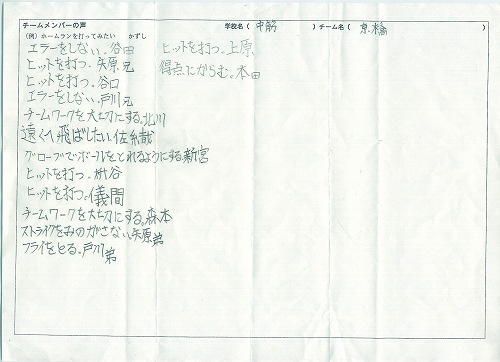 チームメンバーの声 学校名（ 中筋 ）チーム名（ 京橋 ）
（例）ホームランを打ってみたい かずし
エラーをしない.谷田
ヒットを打つ.矢原兄
ヒットを打つ.谷口
エラーをしない.戸川兄
チームワークを大切にする.北川
遠くへ飛ばしたい.佐々哉
グローブでボールをとれるようにする.新宮
ヒットを打つ.桝谷
ヒットを打つ.儀間
チームワークを大切にする.森本
ストライクをみのがさない.矢原弟
フライをとる.戸川弟
ヒットを打つ.上原
得点にからむ.本田